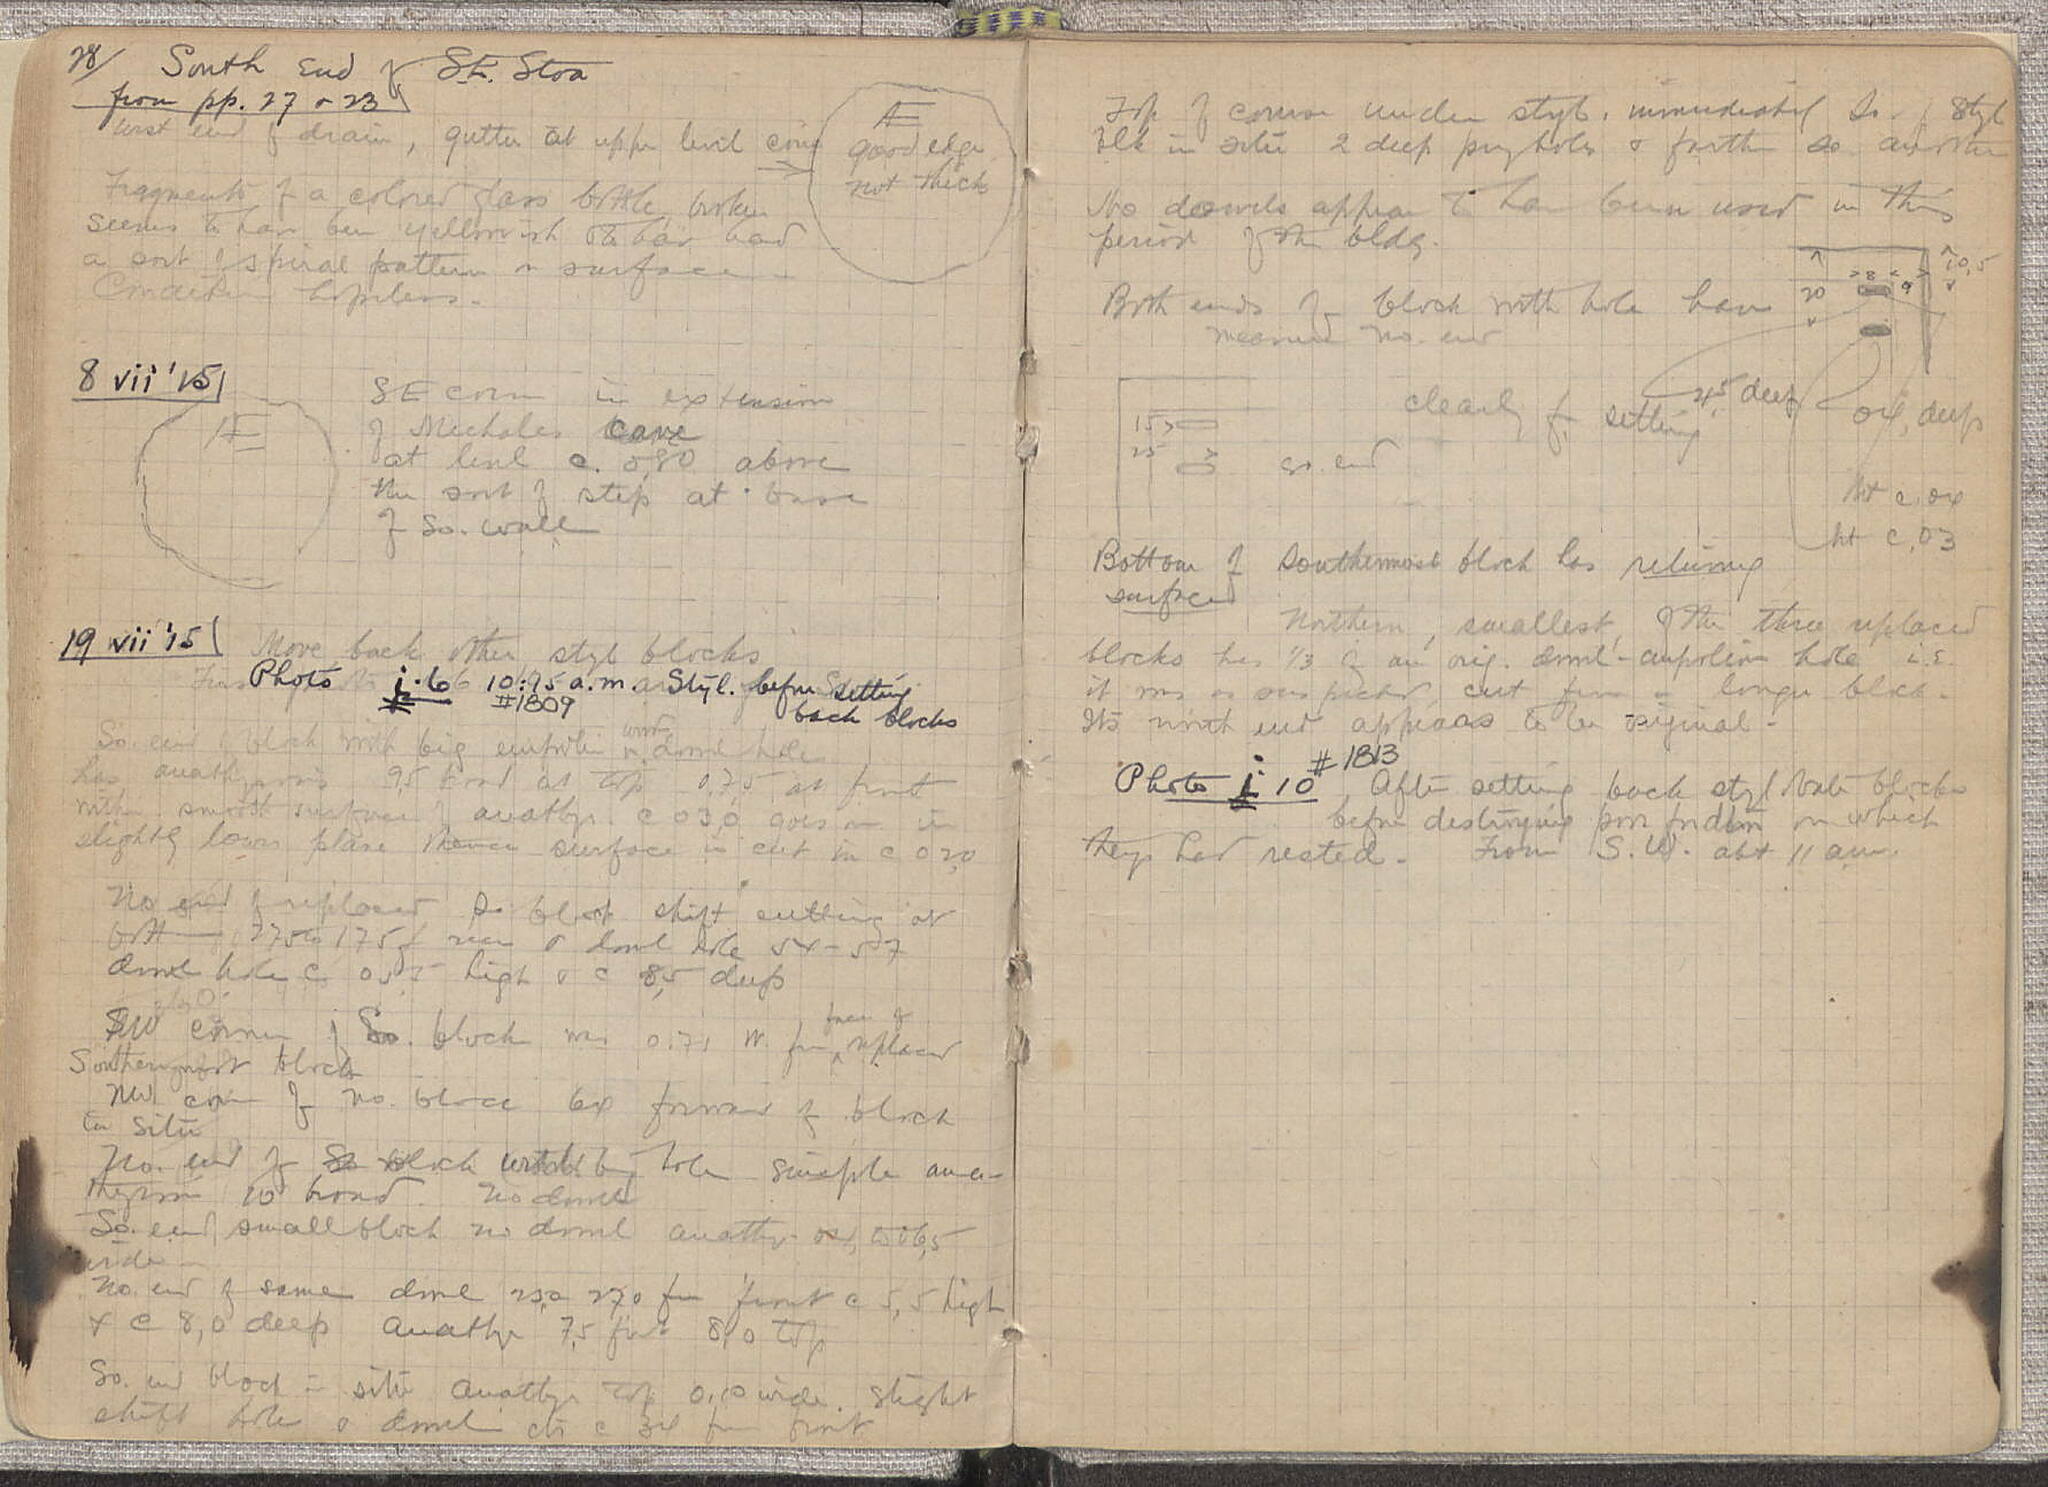 28/ South End of S.E. Stoa
from pp. 27 & 23
West end of drain, gutter at upper level coin
Æ
good edge
not thick
Fragments of a colored glass bottle, broken
seems to have been yellowish & to have had
a sort of spiral pattern on surface
Condition hopeless.
8 vii '15
Æ
SE corner in extension
of Nicholas cave
at level c. 0,80 above
the sort of step at base
of So. wall
19 vii '15 Move back other styl blocks
Photo j.6 10:45 a.m. Styl. before setting
#1809 back blocks
So. end of block with big dowel hole
has anathyrosis 9,5 broad at top 0,75 at front
within smooth surface of anathyr. c 03,0 goes on in
slightly lower plane thence surface is cut in c 0 20
No end of replaced So block shift cutting at
bott 175 f rear & dowel hole 54-57
dowel hole c 0,55 high & c 8,5 deep
SW corner of So. block was 0.71 W. from face of replaced
Southernmost block
NW corner of no. block forward of block
in situ
No. end of block with big hole simple ana-
thyrosis 10 broad. No dowel
So. end small block no dowel anathyr to 06,5
wide
No. end of same dowel 27,0 from front c 5,5 high
& c 8,0 deep Anathyr 7,5 front 8,0 top
So. end block in situ Anathyr top 0,10 wide. Slight
shift hole & dowel c 34 from front
Top of course under styl. immediately So. of styl
blk in situ 2 deep pryholes & further so another
No dowels appear to have been used in this
period of the bldg.
Both ends of block with hole have
measured no. end
20
8
9
10,5
4,5 deep
04, deep
clearly for setting
15
25
so. end
ht c. 04
ht c. 03
Bottom of Southernmost block has returning
surface
Northern, smallest, of the three replaced
blocks has 1/3 of an orig. dowel-empolion hole i.e.
it was as suspected cut from a longer block.
Its north end appears to be original.
Photo j 10 #1813 After setting back stylobate blocks
before destroying poor fndtn on which
they had rested. From S.W. abt 11 a.m.